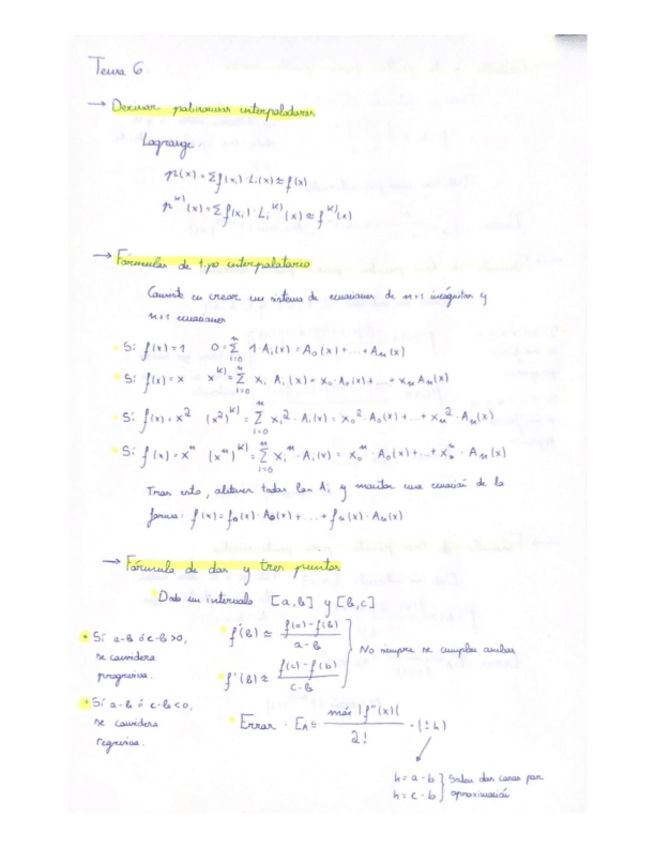 Tema 6
→ Derivar polinomios interpoladores
Lagrange
p(x) = Σ f(xᵢ) · Lᵢ(x) ≈ f(x)
p^(k)(x) = Σ f(xᵢ) · Lᵢ^(k)(x) ≈ f^(k)(x)
→ Fórmulas de tipo interpolatorio
Consiste en crear un sistema de ecuaciones de n+1 incógnitas y
n+1 ecuaciones
Si f(x) = 1 0 = Σ_{i=0}^{n} 1 · Aᵢ(x) = A₀(x) + ... + Aₙ(x)
Si f(x) = x x^(k) = Σ_{i=0}^{n} xᵢ Aᵢ(x) = x₀ · A₀(x) + ... + xₙ Aₙ(x)
Si f(x) = x² (x²)^(k) = Σ_{i=0}^{n} xᵢ² · Aᵢ(x) = x₀² · A₀(x) + ... + xₙ² · Aₙ(x)
Si f(x) = xⁿ (xⁿ)^(k) = Σ_{i=0}^{n} xᵢⁿ · Aᵢ(x) = x₀ⁿ · A₀(x) + ... + xₙⁿ · Aₙ(x)
Tras esto, obtener todas las Aᵢ y montar una ecuación de la
forma: f(x) = f₀(x) · A₀(x) + ... + fₙ(x) · Aₙ(x)
→ Fórmula de dos y tres puntos
Dado un intervalo [a,b] y [b,c]
Si a-b ó c-b > 0,
se considera
progresiva.
Si a-b ó c-b < 0,
se considera
regresiva.
f'(b) ≈ (f(a) - f(b)) / (a - b)
f'(b) ≈ (f(c) - f(b)) / (c - b)
No siempre se cumplen ambas
Error · E_A ≤ (máx |f''(x)|) / 2! · (±h)
h = a - b
h = c - b
Salen dos casos por
aproximación